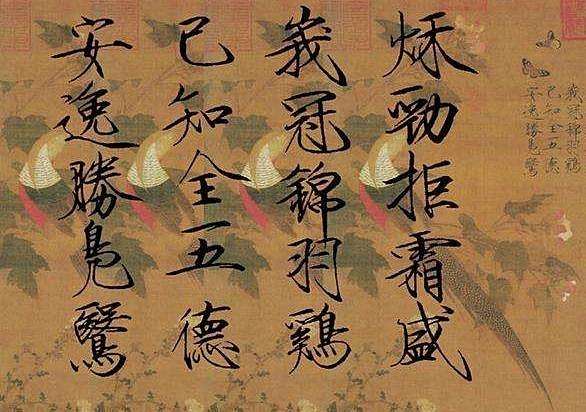 秋勁拒霜盛
峩冠錦羽鷄
已知全五德
安逸勝鳧鷖
峩冠錦羽鷄
已知全五德
安逸勝鳧鷖